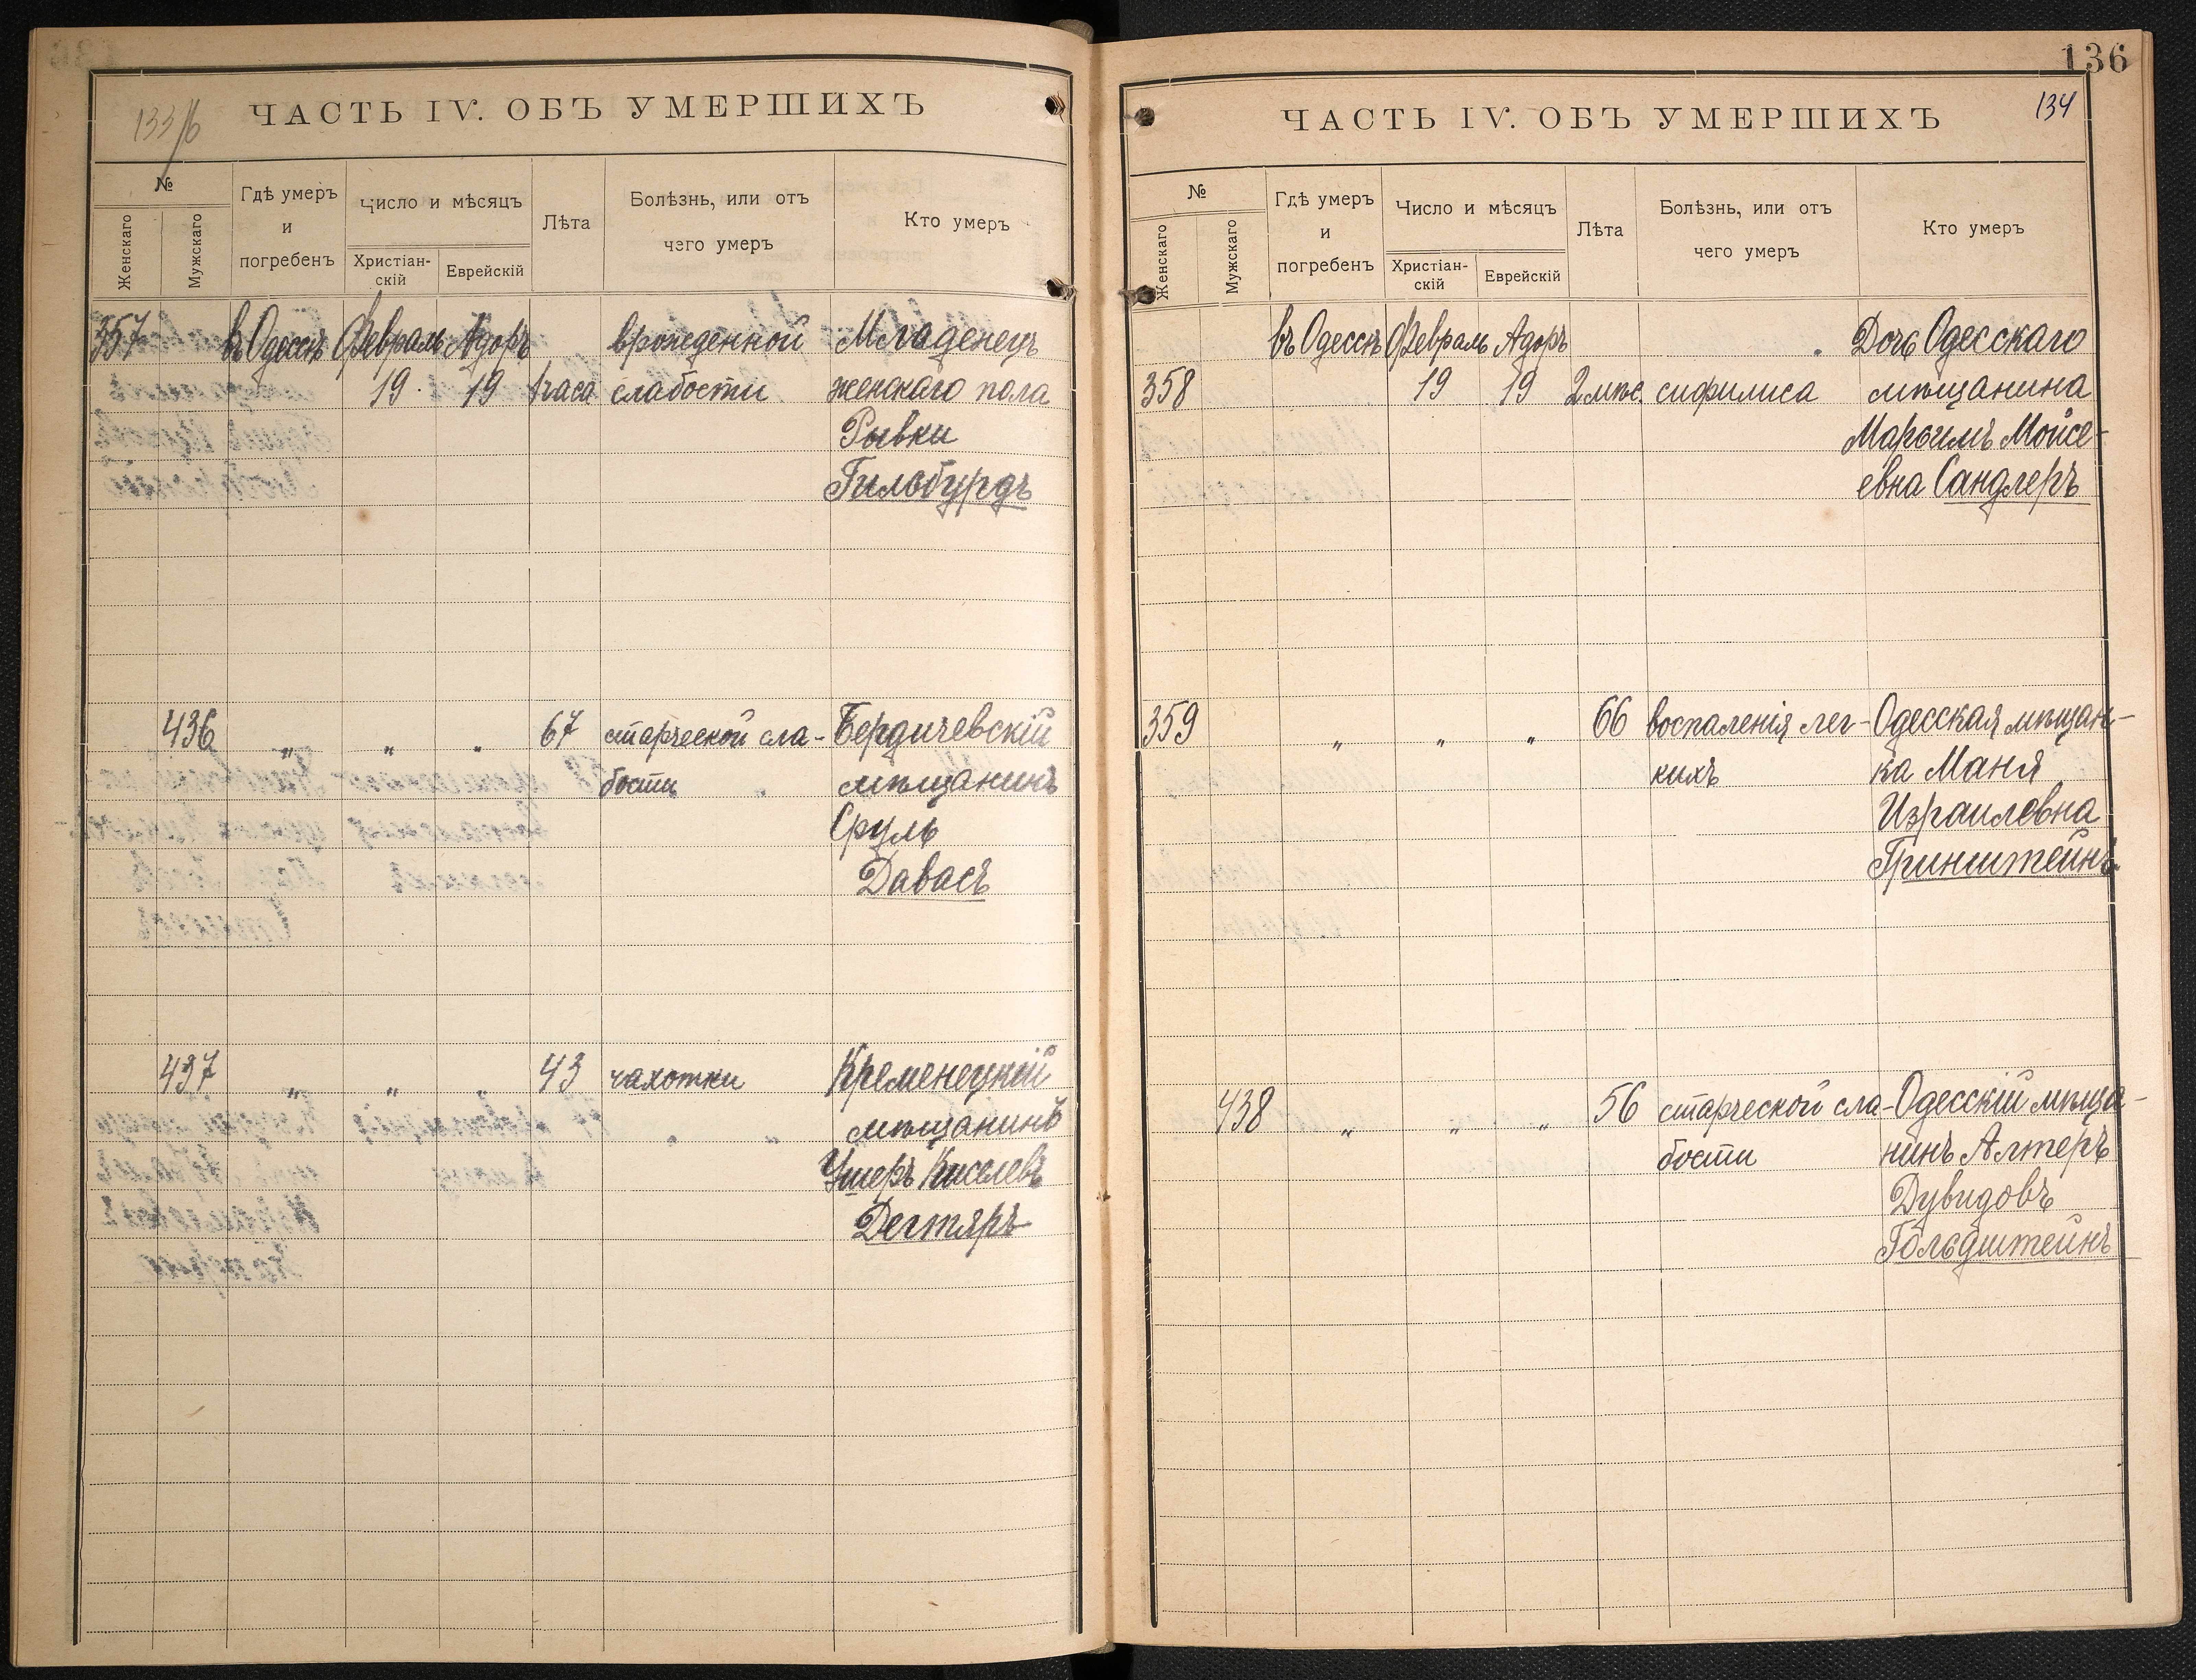 133/б
ЧАСТЬ IV. ОБЪ УМЕРШИХЪ
№
Женскаго
Мужскаго
Гдѣ умеръ
и
погребенъ
Число и мѣсяцъ
Христіан-
скій
Еврейскій
Лѣта
Болѣзнь, или отъ
чего умеръ
Кто умеръ
357 въ Одессѣ Февраль Адоръ врожденной Младенецъ
19 19 1 часа слабости женскаго пола
Рывки
Гильбурдъ
436 " " " 67 старческой сла- Бердичевскій
бости мѣщанинъ
Сруль
Давасъ
437 " " " 43 чахотки Кременецкій
мѣщанинъ
Ушеръ Киселевъ
Дегтяръ
136
134
ЧАСТЬ IV. ОБЪ УМЕРШИХЪ
№
Женскаго
Мужскаго
Гдѣ умеръ
и
погребенъ
Число и мѣсяцъ
Христіан-
скій
Еврейскій
Лѣта
Болѣзнь, или отъ
чего умеръ
Кто умеръ
въ Одессѣ Февраль Адоръ Дочь Одесскаго
358 19 19 2 мѣс. сифилиса мѣщанина
Марьимъ Мойсе-
евна Сандлеръ
359 " " " 66 воспаленія лег- Одесская мѣщан-
кихъ ка Маня
Израилевна
Гринштейнъ
438 " " " 56 старческой сла- Одесскій мѣща-
бости нинъ Алтеръ
Дувидовъ
Гольдштейнъ